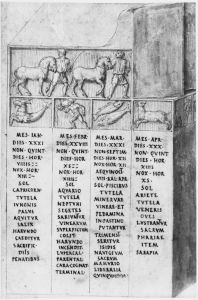 MES·IAN
DIES·XXXI
NON·QUINT
DIES·HOR
VIIII
NOX·HOR
XIIII
SOL
CAPRICORN
TUTELA
IUNONIS
PALUS
AQUITUR
SALIX
HARUNDO
CAEDITUR
SACRIFI
DIIS
PENATIBUS
MES·FEBR
DIES·XXVIII
NON·QUINT
DIES·HOR
NOX·HOR
XIII
SOL
AQUARIO
TUTELA
NEPTUNI
SEGETES
SARIUNTUR
VINEARUM
SUPERFICIUM
COLIT
HARUNDO
INCENDIT
LUPERCAL
PARENTAL
CARACOGNAT
TERMINAL
MES·MAR
DIES·XXXI
NON·SEPTIM
DIES·HOR·XII
NOX·HOR·XII
AEQUINOCT
SOL·PISCIBUS
TUTELA
MINERVAE
VINEAE·
PEDAMINA
IN·PASTINO
PUTANTUR
SERITUR
ISIDIS
NAVIGIUM
SACRUM
MAMURIO
LIBERALIA
QUINQUATRIA
MES·APR
DIES·XXX
NON·QUINT
DIES·HOR
NOX·HOR
XS
SOL
ARIETE
TUTELA
VENERIS
OVES
LUSTRANTUR
SACRUM
PHARIAE
ITEM
SARAPIA